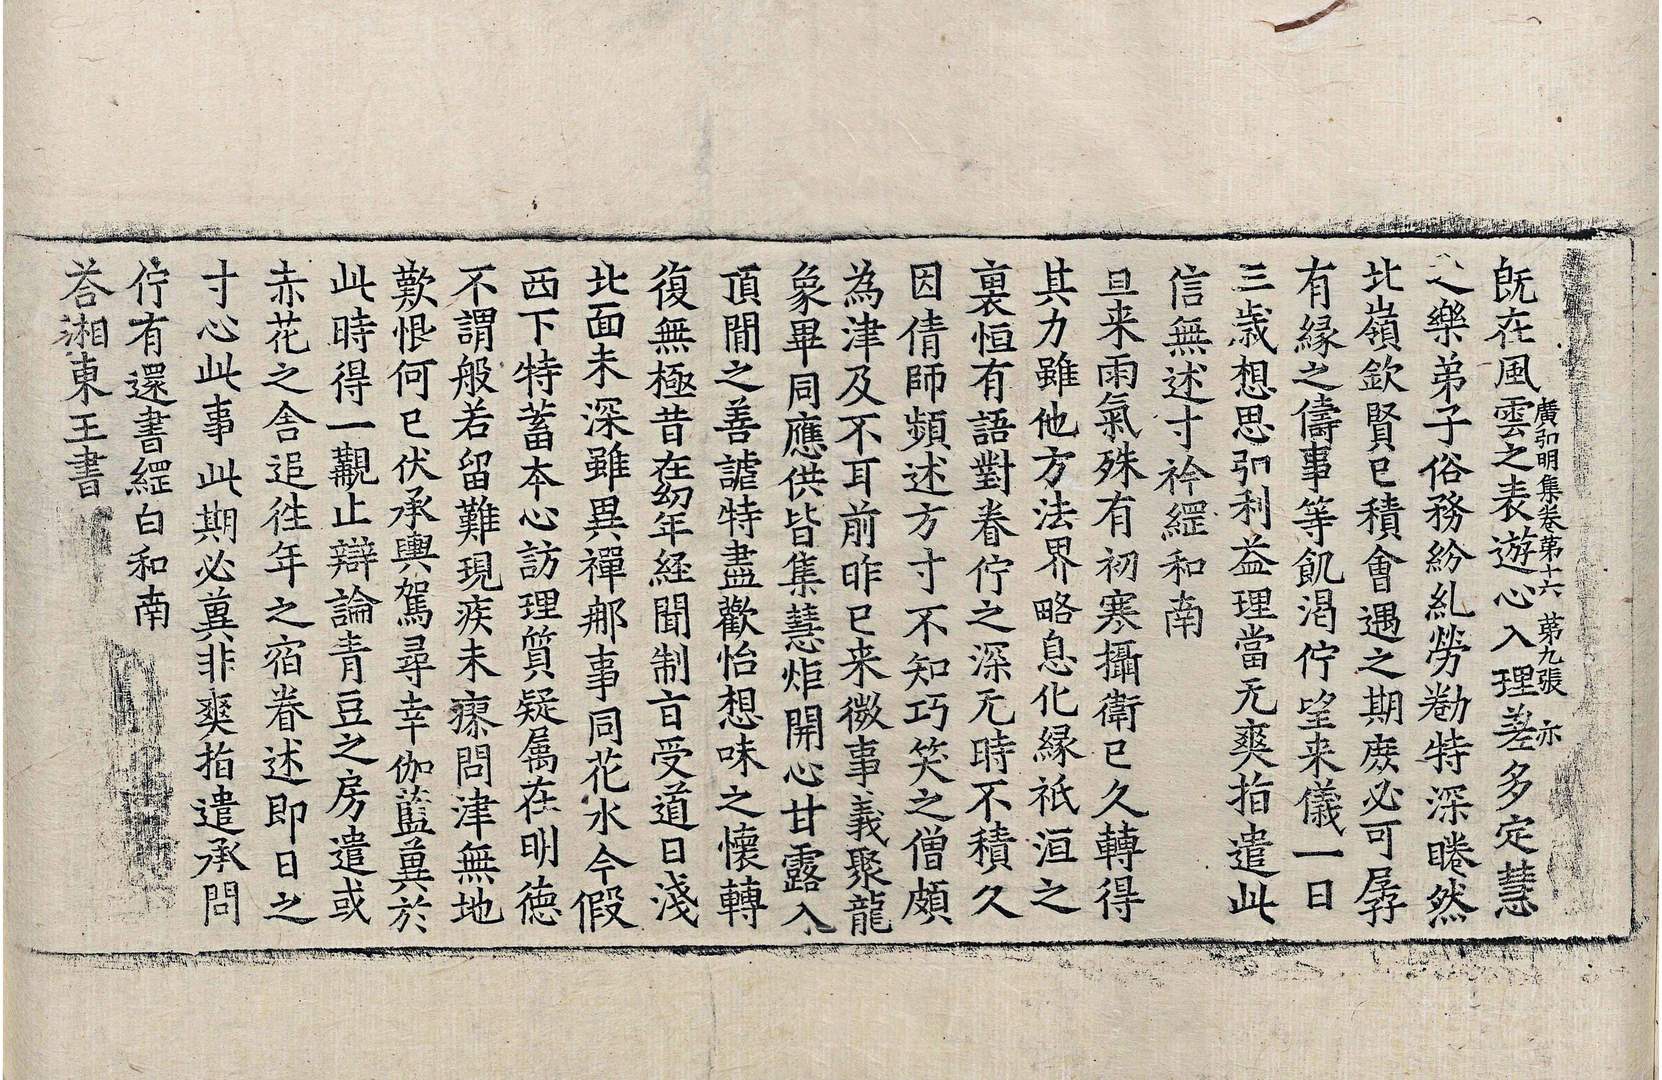 廣弘明集卷第十六 第九張 亦
既在風雲之表遊心入理差多定慧
之樂弟子俗務紛糺勞勌特深睠然
北嶺欽賢已積會遇之期庶必可孱
有縁之儔事等飢渴佇望来儀一日
三歳想思弘利益理當无爽指遣此
信無述寸衿纒和南
旦来雨氣殊有初寒攝衛已久轉得
其力雖他方法界略息化縁祇洹之
裏恒有語對眷佇之深无時不積久
因倩師頻述方寸不知巧笑之僧頗
為津及不耳前昨已来微事義聚龍
象畢同應供皆集慧炬開心甘露入
頂閒之善謔特盡歡怡想味之懷轉
復無極昔在㓜年経聞制㫖受道日淺
北面未深雖異禪郍事同花水今假
西下特蓄夲心訪理質疑属在明徳
不謂般若留難現疾未瘳問津無地
歎恨何已伏承輿駕尋幸伽藍兾於
此時得一觀止辯論青豆之房遣或
赤花之舎追徃年之宿眷述即日之
寸心此事此期必兾非爽指遣承問
佇有還書纒白和南
荅湘東王書